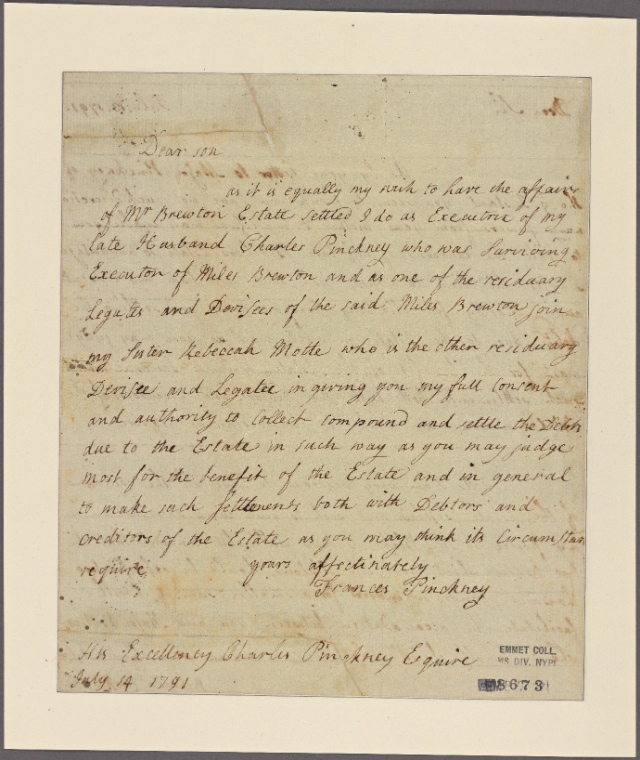 Dear son
as it is equally my wish to have the affairs
of Mr Brewton Estate settled I do as Executrix of my
late Husband Charles Pinckney who was Surviving
Executor of Miles Brewton and as one of the residuary
Legates and Devisees of the said Miles Brewton join
my Sister Rebeccah Motte who is the other residuary
Devisee and Legatee in giving you my full Consent
and authority to Collect compound and settle the Debts
due to the Estate in such way as you may judge
most for the benefit of the Estate and in general
to make such settlements both with Debtors and
Creditors of the Estate as you may think its Circumstan
require yours affectinately
Frances Pinckney
His Excellency Charles Pinckney Esquire
July 14 1791
EMMET COLL.
DIV. NYPL
8673